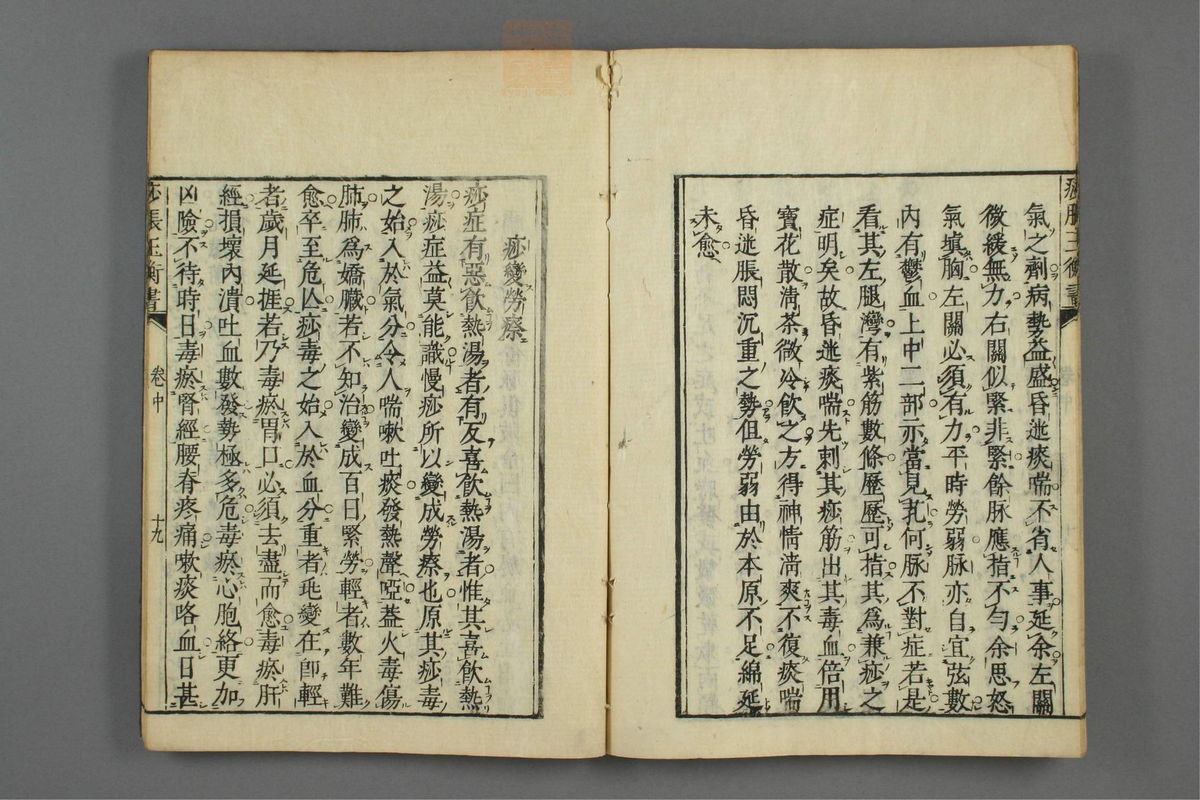 氣之劑病勢益盛昏迷痰喘不省人事延余左關
微緩無力右關似緊非緊餘脉應指不勻余思怒
氣塡胸左關必須有力平時勞弱脉亦自宜弦數
內有鬱血上中二部亦當見芤何脉不對症若是
看其左腿灣有紫筋數條歷歷可指其爲兼痧之
症明矣故昏迷痰喘先刺其痧筋出其毒血倍用
寶花散淸茶微冷飮之方得神情淸爽不復痰喘
昏迷脹悶沉重之勢但勞弱由於本原不足綿延
未愈
痧變勞瘵
痧症有惡飮熱湯者有反喜飮熱湯者惟其喜飮熱
湯痧症益莫能識慢痧所以變成勞瘵也原其痧毒
之始入於氣分令人喘嗽吐痰發熱聲啞葢火毒傷
肺肺爲嬌臟若不知治變成百日緊勞輕者數年難
愈卒至危亾痧毒之始入於血分重者乖變在卽輕
者歲月延捱若乃毒瘀胃口必須去盡而愈毒瘀肝
經損壞內潰吐血數發勢極多危毒瘀心胞絡更加
凶險不待時日毒瘀腎經腰脊疼痛嗽痰咯血日甚
痧脹玉衡書
卷中
十九